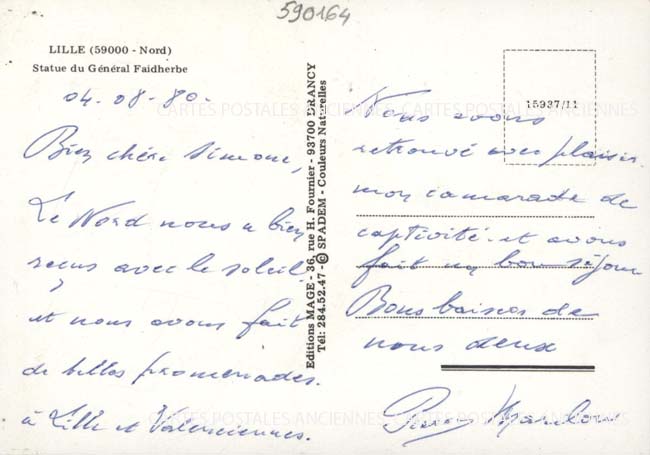 590164
LILLE (59000 - Nord)
Statue du Général Faidherbe
04-08-80-
Bien chère Simone,
Le Nord nous a bien
reçus avec le soleil
et nous avons fait
de belles promenades.
à Lille et Valenciennes.
Editions MAGE - 36, rue H. Fournier - 93700 DRANCY
Tél: 284.52.47 - © SPADEM - Couleurs Naturelles
15937/11
Nous avons
retrouvé avec plaisir
mon camarade de
captivité et avons
fait un bon séjour
Bons baisers de
nous deux
CARTES POSTALES ANCIENNES
CARTES POSTALES ANCIENNES
CARTES POSTALES ANCIENNES
CARTES POSTALES ANCIENNES